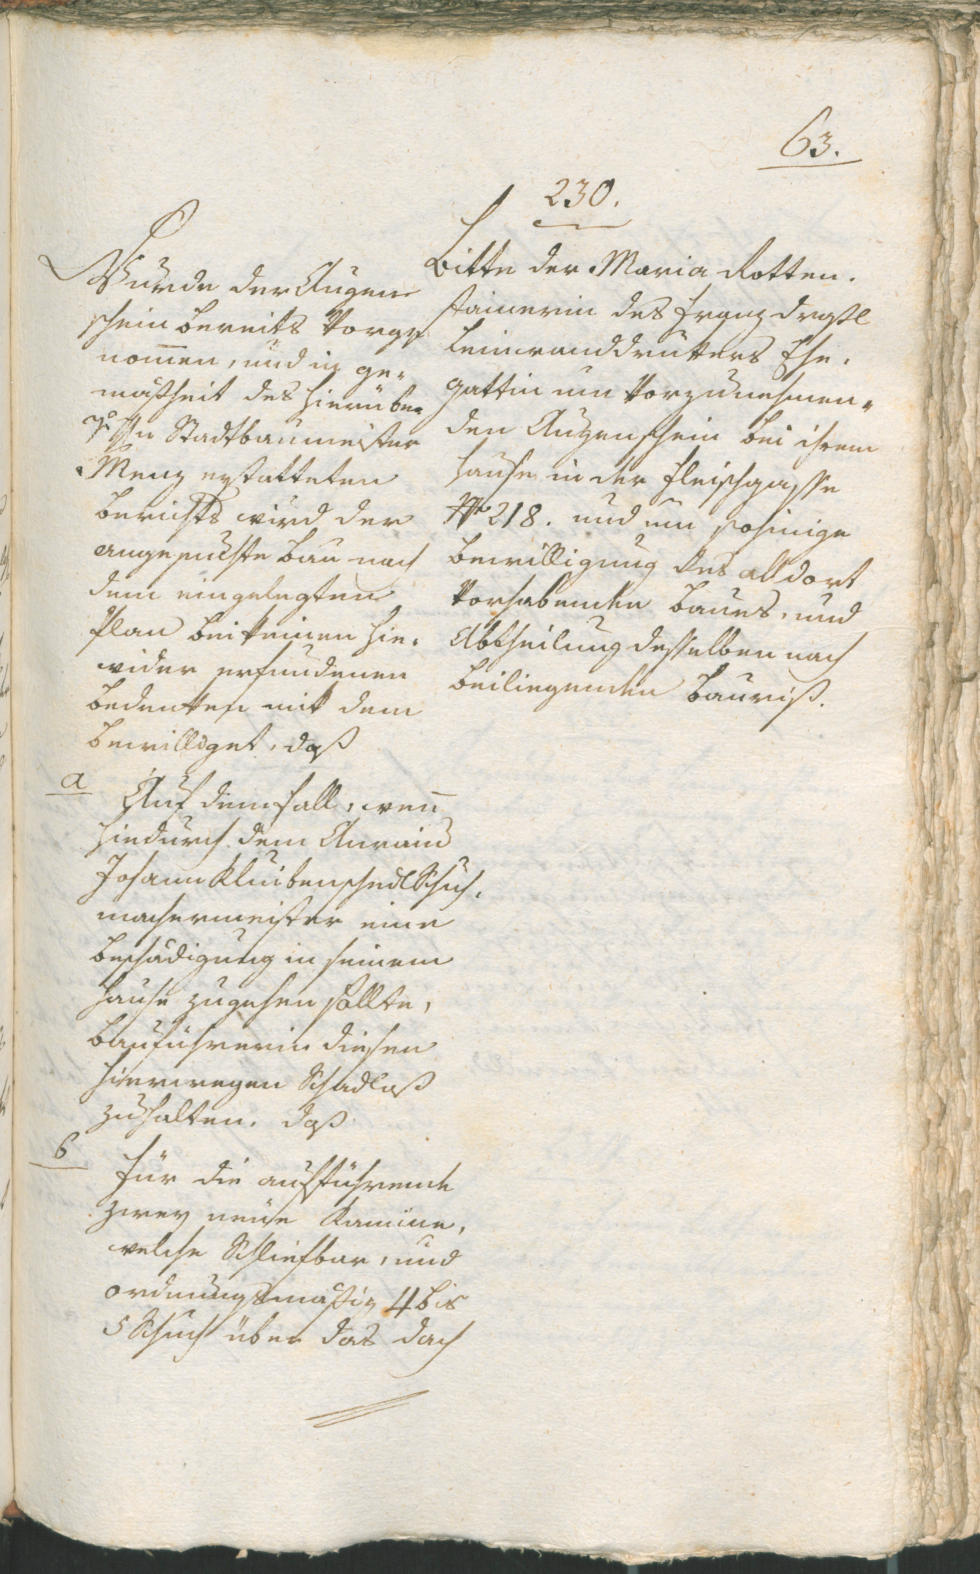 63.
230.
Bitte der Maria Rotten-
stainerin des Franz
Leinwanddrukers Ehe-
gattin um Vorzunehmen-
den Augenschein bei ihrem
Hause in der Fleischgasse
Nr 218. und um sohinige
Bewilligung des alldort
Vorhabenden Baues, und
Abtheilung desselben nach
beiliegenden Bauriß.
Wurde der Augen
schein bereits Vorge
nom̅en, und in ge-
maßheit des hierüber
Stadtbaumeister
Menz erstatteten
Berichts wird der
angesuchte Bau nach
dem eingelegten
Plan bei keinen hie-
wider erfundenen
Bedenken mit dem
bewilliget, daß
a
Auf dem Fall, wen̅
hiedurch dem Anrain
Johann Kluibenschedl Schuh-
machermeister eine
Beschädigung in seinem
Hause zugehen sollte,
Bauführerin diesen
hierwegen Schadlos
zuhalten. daß
b
Für die aufführende
zwey neue Kamine,
welche Schliefbar, und
ordnungsmäßig 4 bis
5 Schuch über das Dach